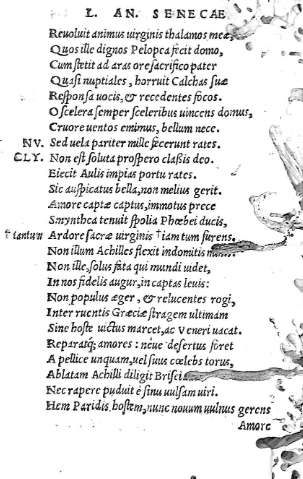 L. AN. SENECAE
Reuoluit animus uirginis thalamos meæ,
Quos ille dignos Pelopea fecit domo,
Cum stetit ad aras ore sacrifico pater
Quasi nuptiales, horruit Calchas suæ
Responsa uocis, & recedentes focos.
O scelera semper sceleribus uincens domus,
Cruore uentos emimus, bellum nece.
NV. Sed uela pariter mille fecerunt rates.
CLY. Non est soluta prospero classis deo.
Eiecit Aulis impias portu rates.
Sic auspicatus bella, non melius gerit.
Amore captæ captus, immotus prece
Smynthea tenuit spolia Phœbei ducis,
†tantum Ardore sacræ uirginis †iam tum furens.
Non illum Achilles flexit indomitus
Non ille, solus fata qui mundi uidet,
In nos fidelis augur, in captas leuis:
Non populus æger, & relucentes rogi,
Inter ruentis Græciæ stragem ultimam
Sine hoste uictus marcet, ac Veneri uacat.
Reparatq; amores: neue desertus foret
A pellice unquam, uel sinu cœlebs torus,
Ablatam Achilli diligit Brisei
Nec rapere puduit è sinu uulsam uiri.
Hem Paridis hostem, nunc nouum uulnus gerens
Amore